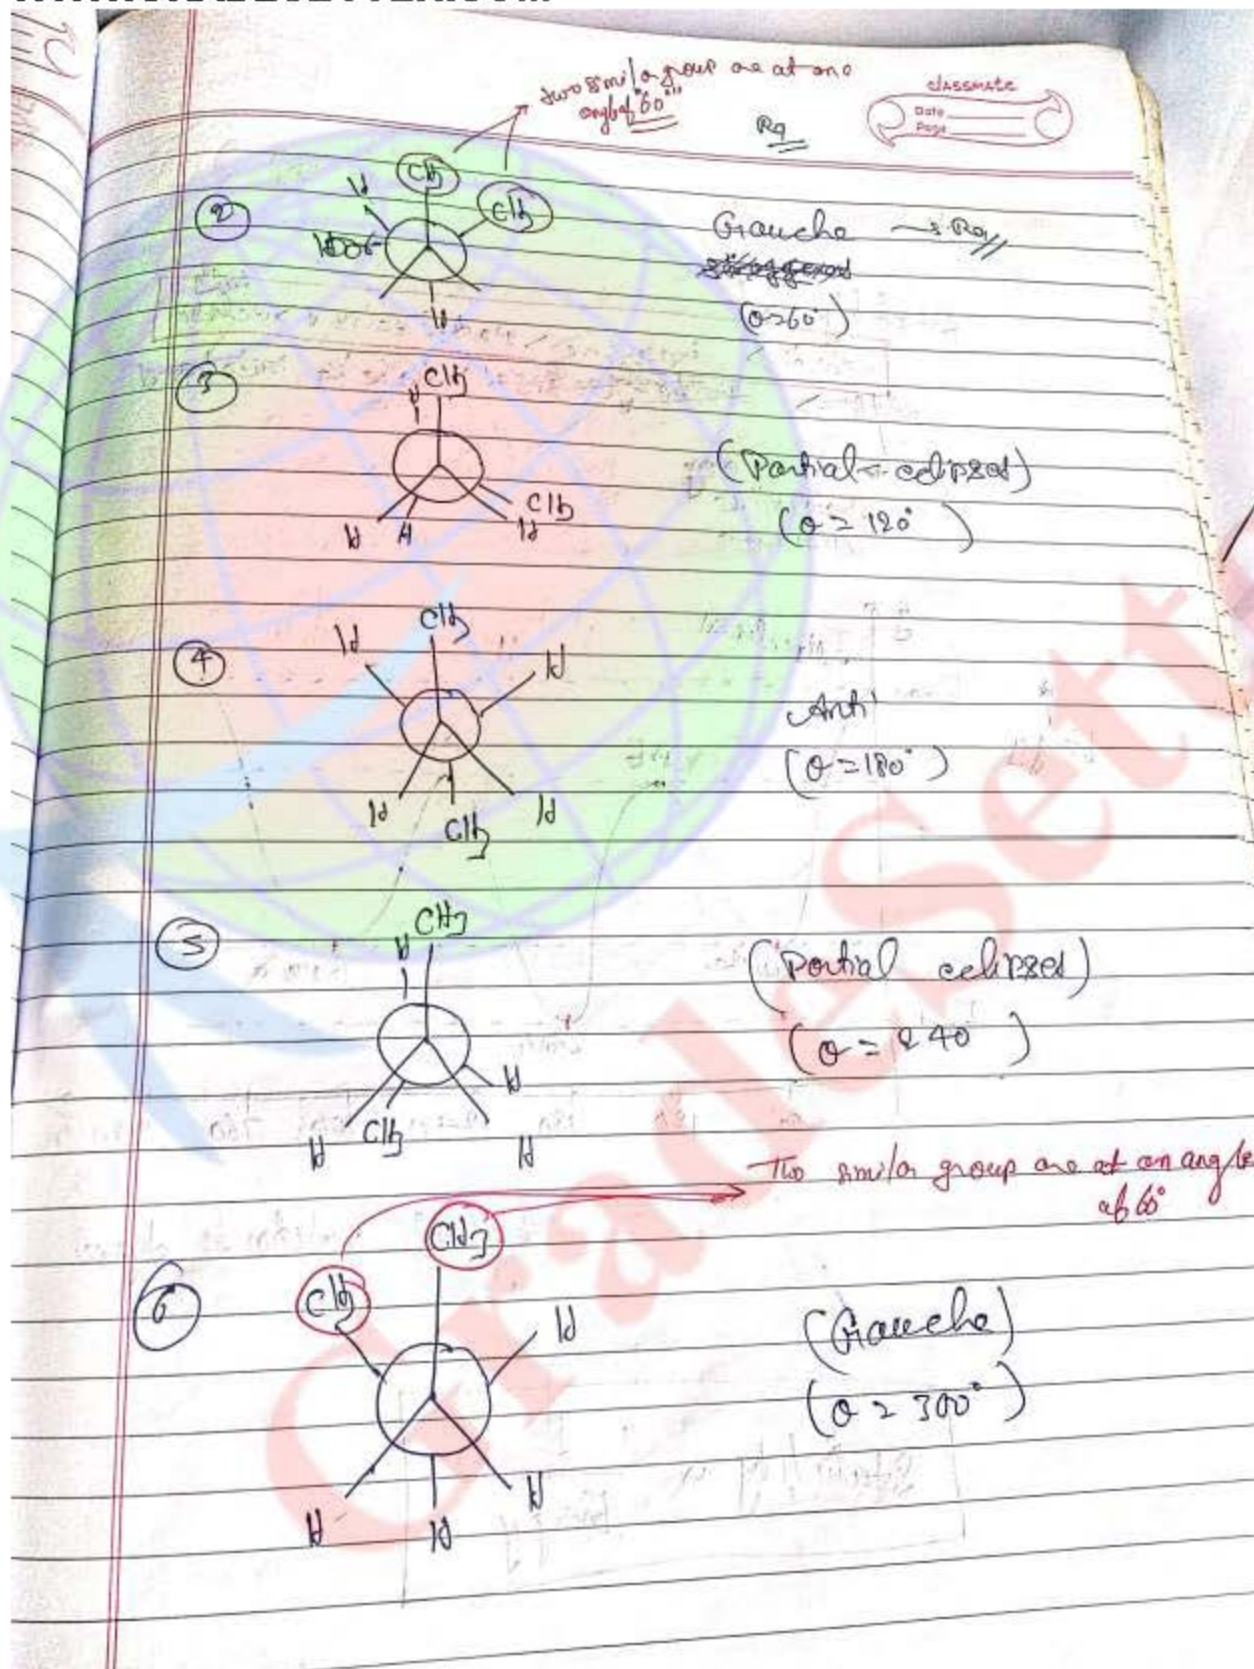 two similar group are at one
angle of "60°"
Rq
classmate
Date
Page
②
CH3
CH3
H
H
Gauche → Rq
(θ=60°)
③
H CH3
CH3
H H H
(Partial - eclipsed)
(θ = 120°)
④
CH3
H H
H CH3 H
Anti
(θ = 180°)
⑤
H CH3
H
H CH3 H
(Partial eclipsed)
(θ = 240)
Two similar group are at an angle
of 60°
⑥
CH3
CH3
H
H H H
(Gauche)
(θ = 300°)
GradeSett